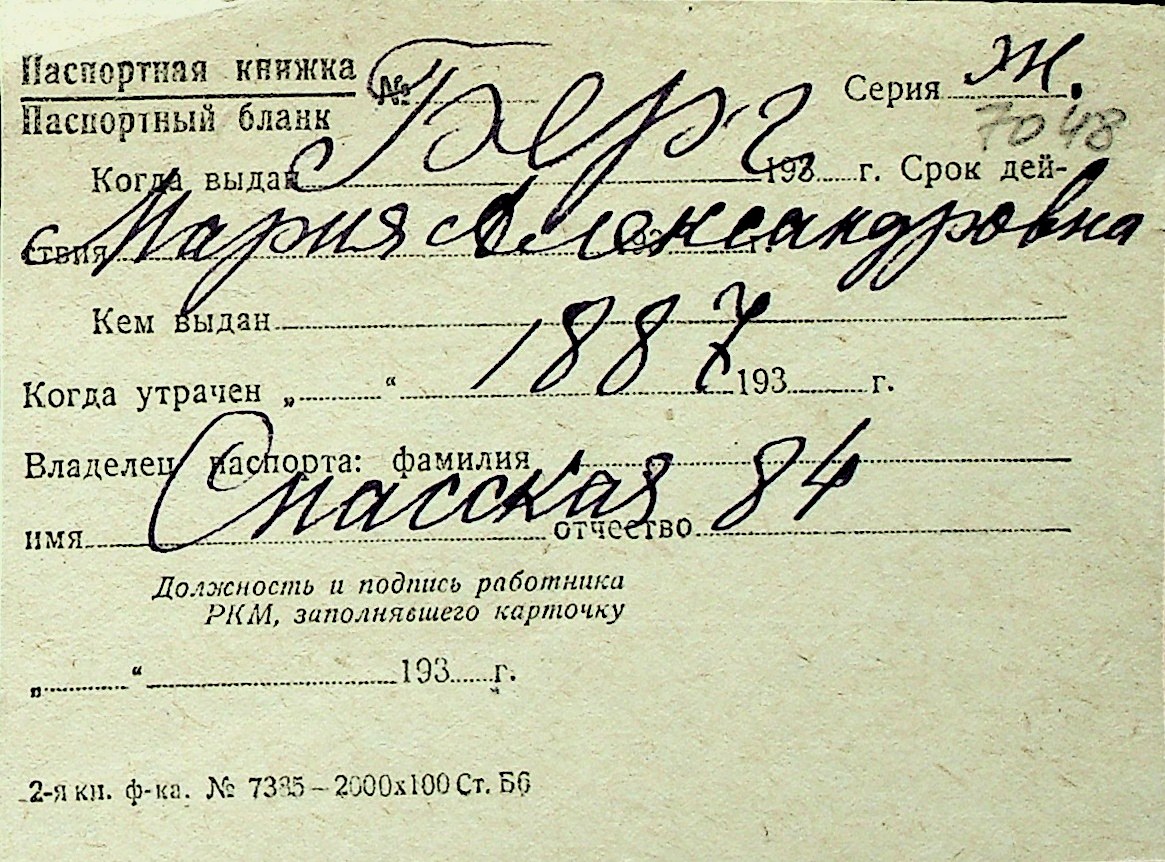 Паспортная книжка № Серия ж.
Паспортный бланк Берг 7048
Когда выдан 193 г. Срок дей-
ствия 193 г.
Мария Александровна
Кем выдан
1887
Когда утрачен „ “ 193 г.
Владелец паспорта: фамилия
Спасская 84
имя отчество
Должность и подпись работника
РКМ, заполнявшего карточку
„ “ 193 г.
2-я кн. ф-ка. № 7335 – 2000х100 Ст. Б6